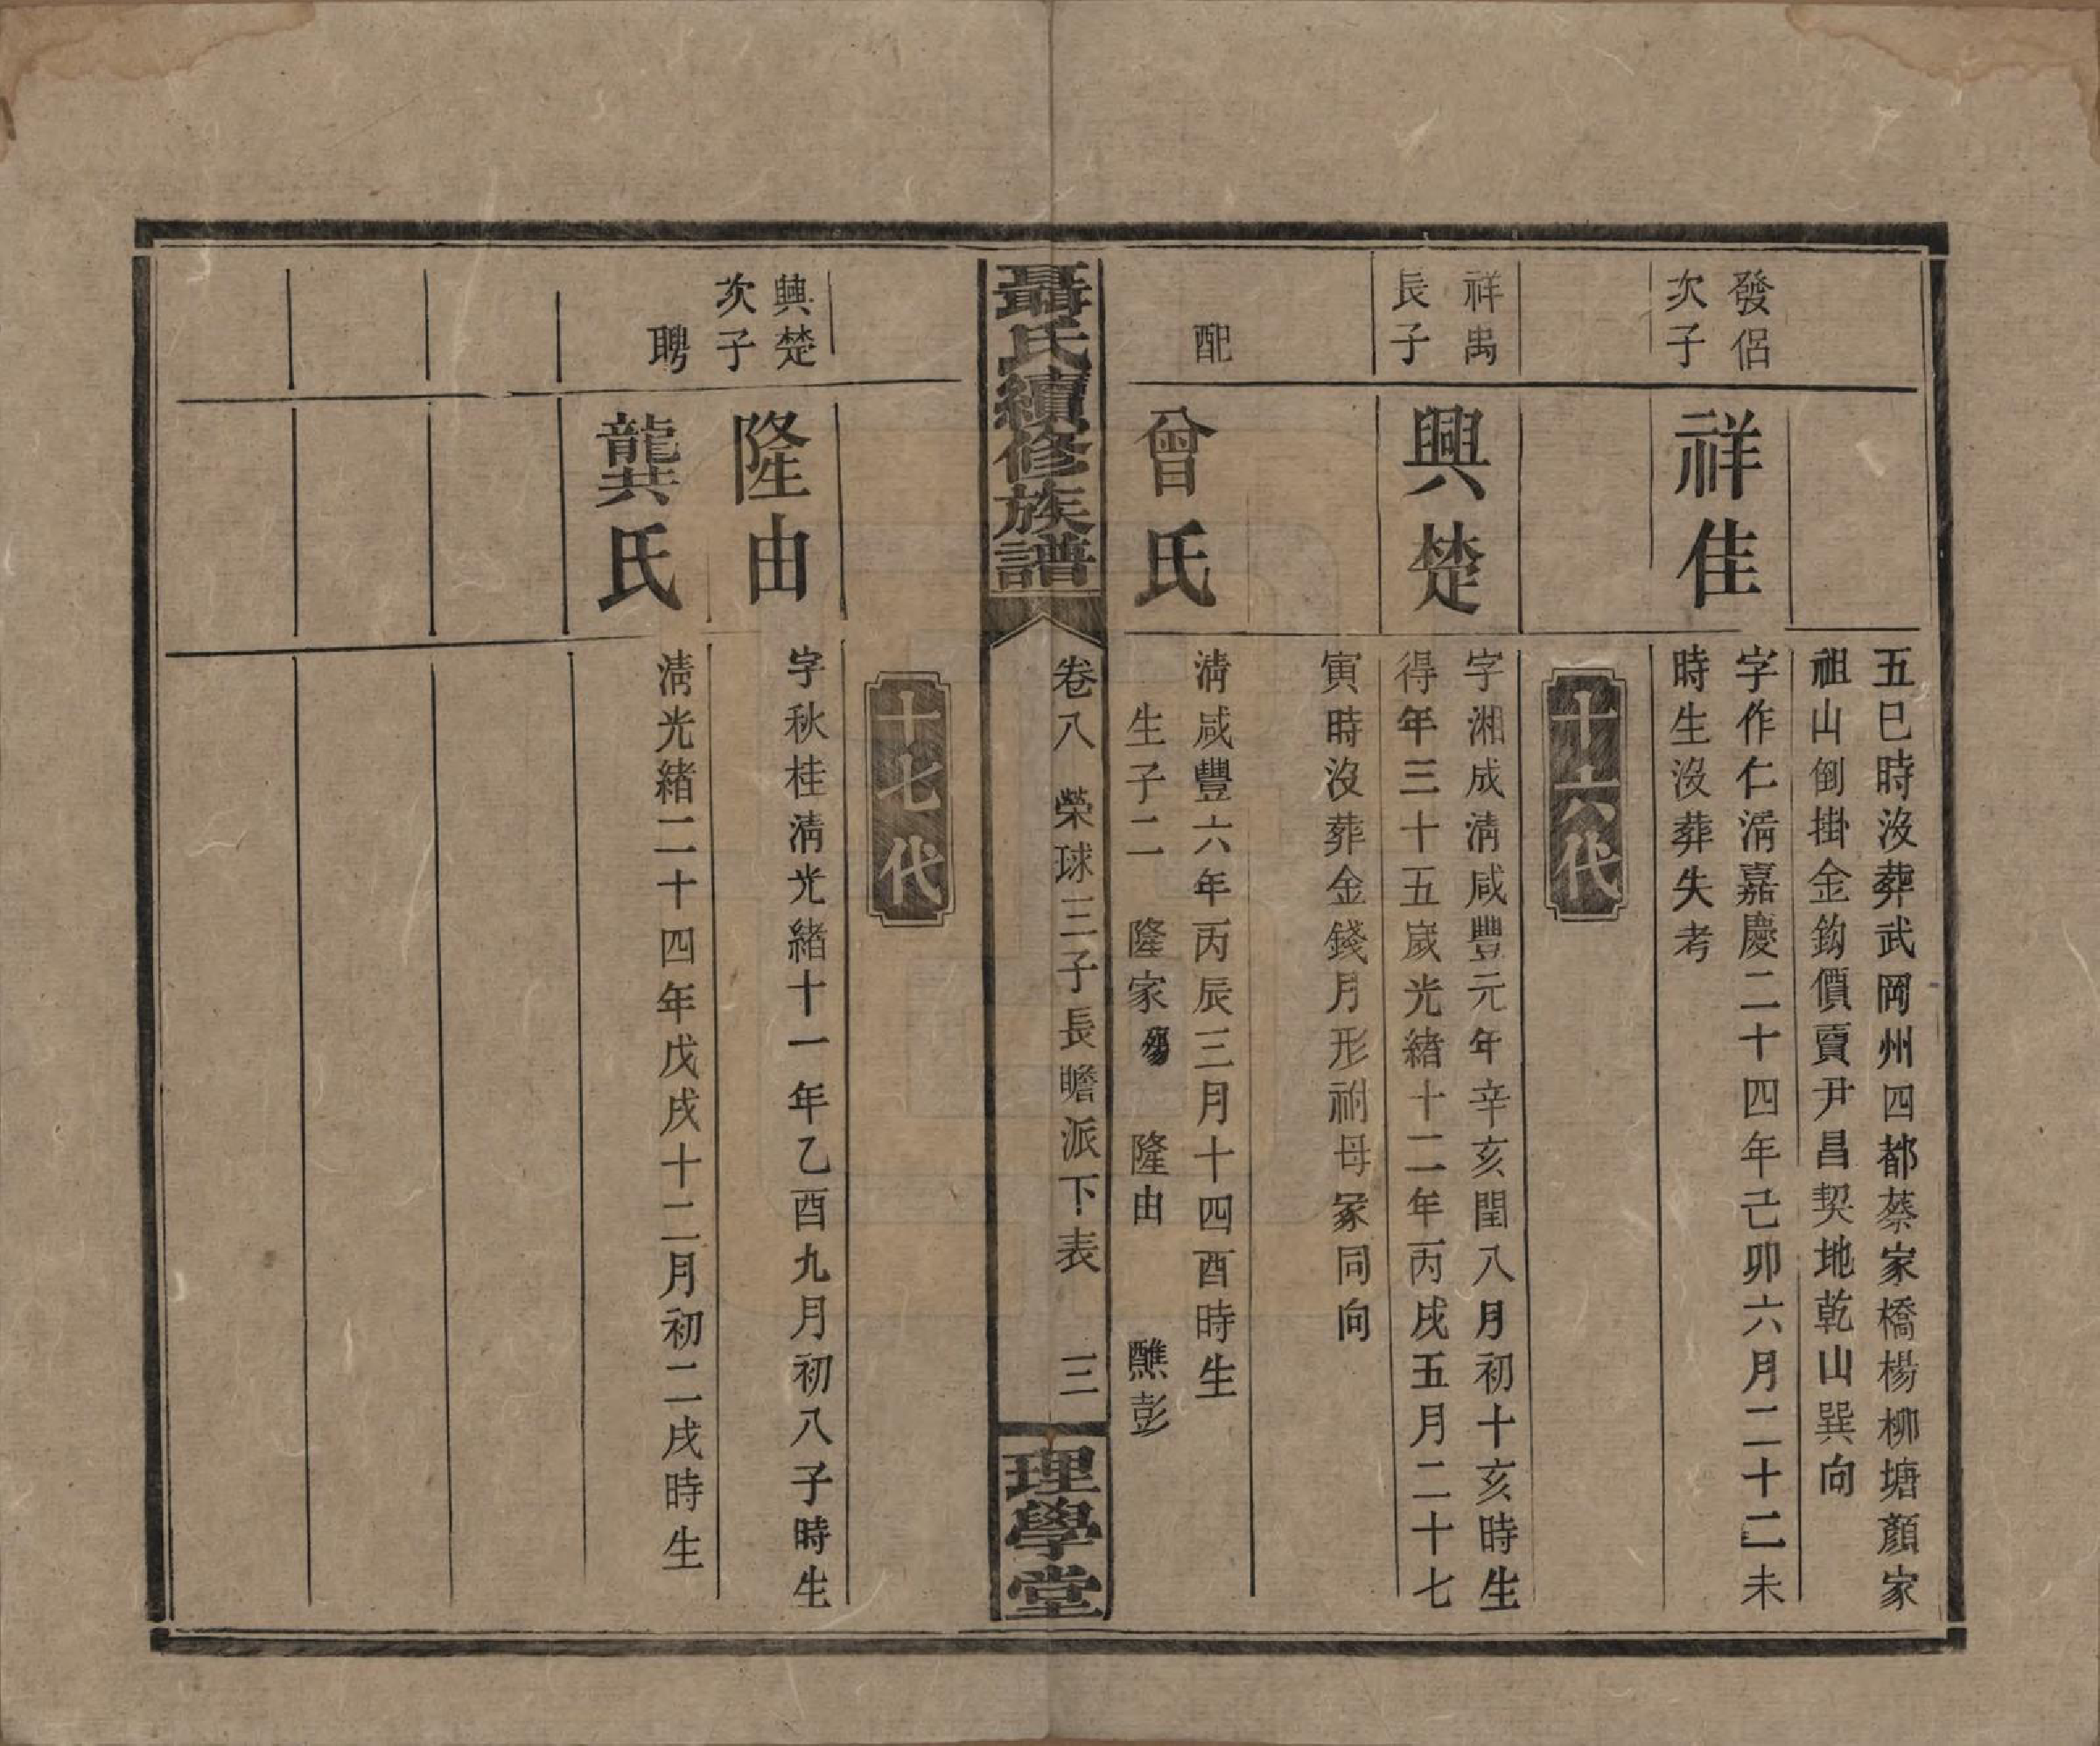 五巳時沒葬武岡州四都蔡家橋楊柳塘顏家
祖山倒掛金鈎價賣尹昌契地乾山巽向
發侶次子
祥佳
字作仁淸嘉慶二十四年己卯六月二十二未
時生沒葬失考
十六代
祥禹長子
興楚
字湘成淸咸豐元年辛亥閏八月初十亥時生
得年三十五歲光緒十二年丙戌五月二十七
寅時沒葬金錢月形祔母冢同向
配
曾氏
淸咸豐六年丙辰三月十四酉時生
生子二 隆家殤 隆由 醮彭
聶氏續修族譜
卷八 榮球三子長瞻派下表 三
理學堂
十七代
興楚次子
隆由
字秋桂淸光緒十一年乙酉九月初八子時生
聘
龔氏
淸光緒二十四年戊戌十二月初二戌時生